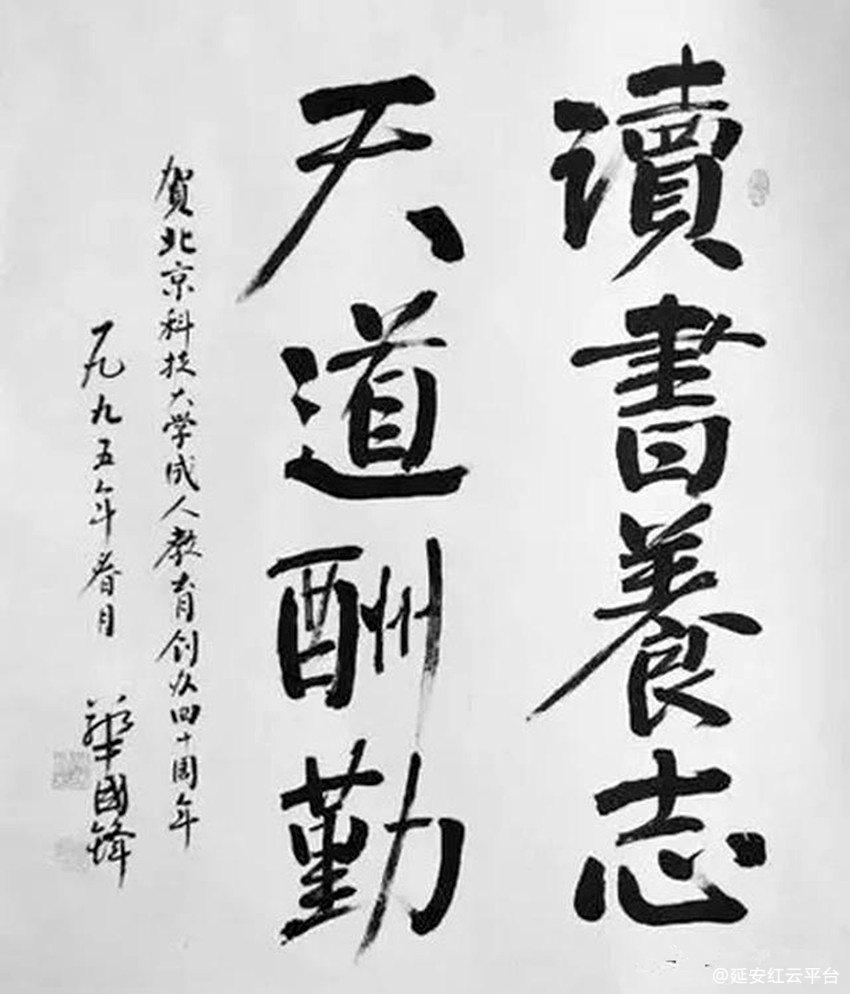 讀書養志
天道酬勤
賀北京科技大学成人教育创办四十周年
一九九五年春月 華國鋒
@延安红云平台